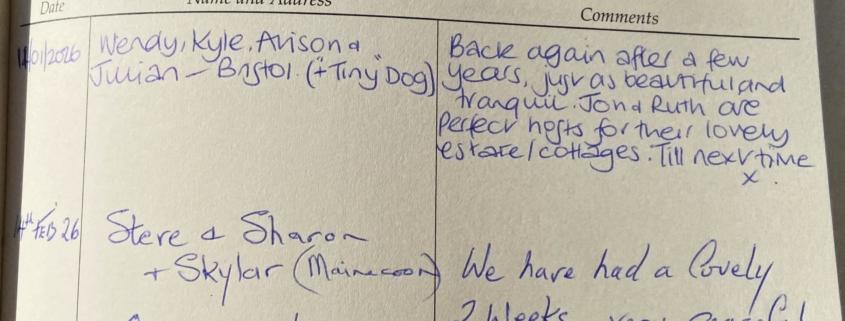 Date Name and Address Comments
/01/2026 Wendy, Kyle, Arison &
Julian - Bristol. (+"Tiny" Dog)
Back again after a few
years, just as beautiful and
tranquil. Jon & Ruth are
perfect hosts for their lovely
estate/cottages. Till next time
x.
4th FEB 26 Steve & Sharon
+ Skylar (Mainecoon)
We have had a lovely
2 Weeks